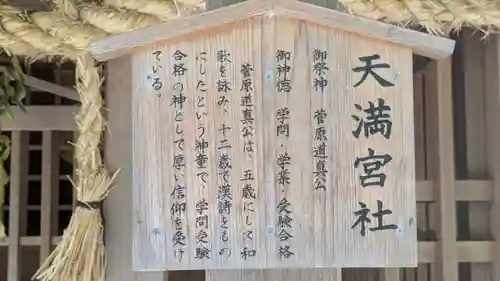 天満宮社
御祭神 菅原道真公
御神徳 学問・学業・受験合格
菅原道真公は、五歳にして和
歌を詠み、十二歳で漢詩をもの
にしたという神童で、学問受験
合格の神として厚い信仰を受け
ている。